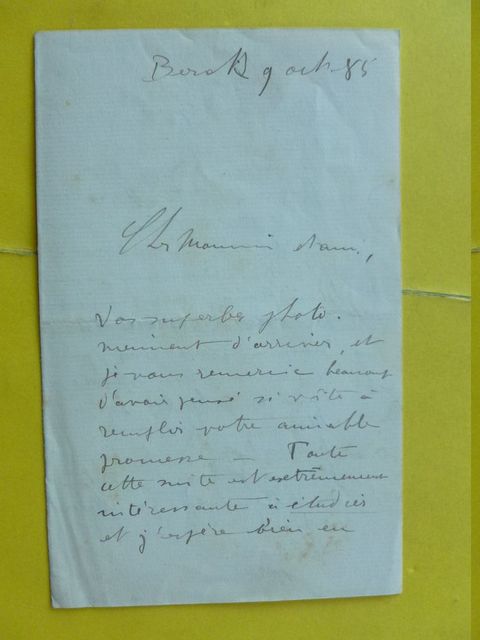 Berck 9 oct. 85
Cher Monsieur et ami,
Vos superbes photo.
viennent d'arriver, et
je vous remercie beaucoup
d'avoir pensé si vite à
remplir votre aimable
promesse — Toute
cette suite est extrêmement
intéressante à étudier
et j'espère bien en